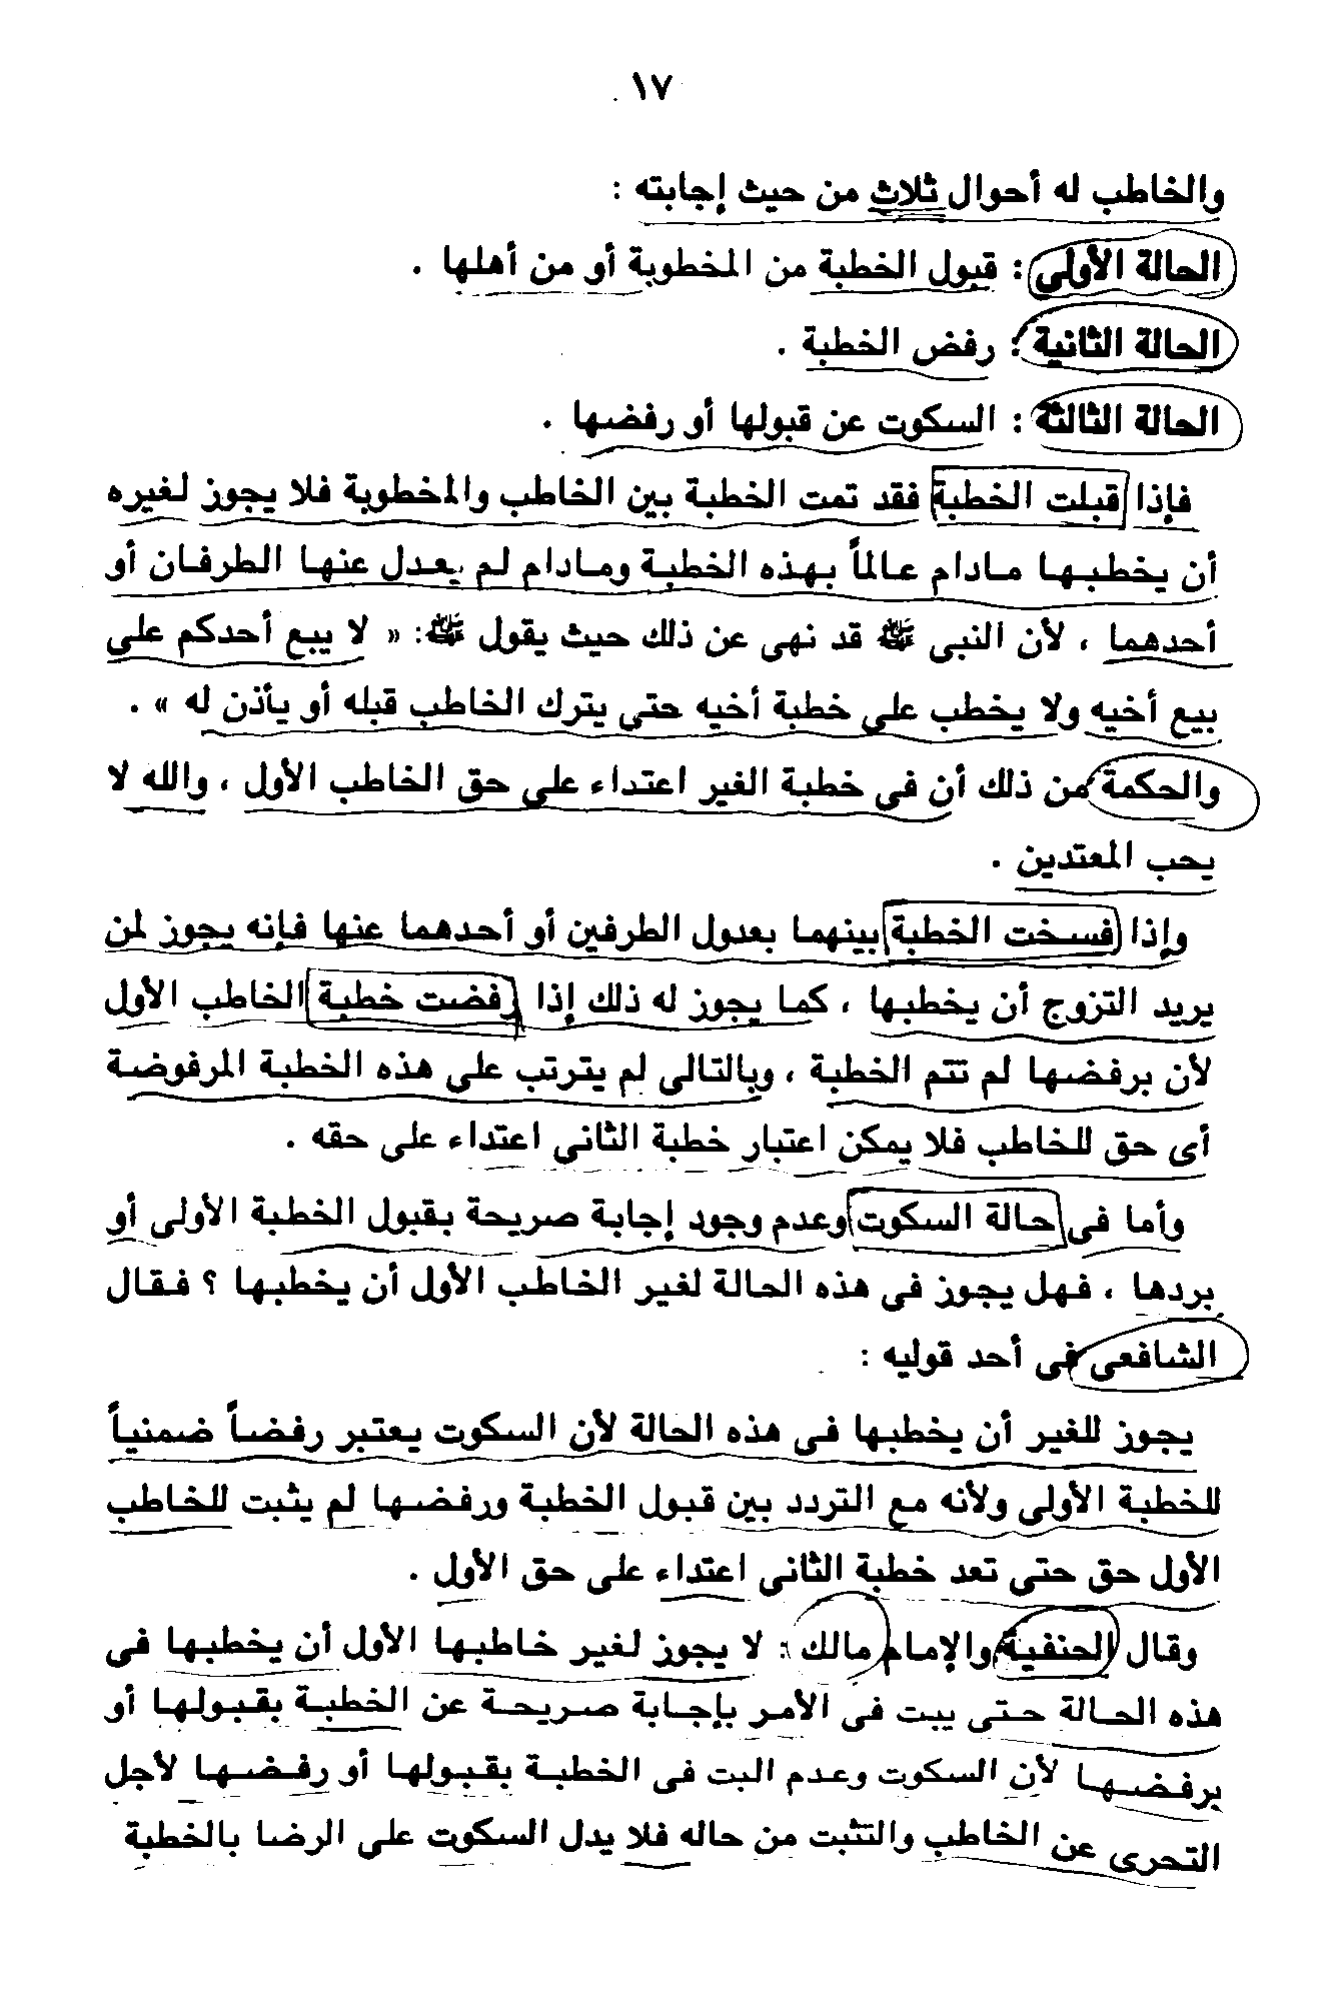 ١٧
والخاطب له أحوال ثلاث من حيث إجابته :
الحالة الأولى : قبول الخطبة من المخطوبة أو من أهلها .
الحالة الثانية : رفض الخطبة .
الحالة الثالثة : السكوت عن قبولها أو رفضها .
فإذا قبلت الخطبة فقد تمت الخطبة بين الخاطب والمخطوبة فلا يجوز لغيره
أن يخطبها مادام عالماً بهذه الخطبة ومادام لم يعدل عنها الطرفان أو
أحدهما ، لأن النبى ﷺ قد نهى عن ذلك حيث يقول ﷺ: « لا يبع أحدكم على
بيع أخيه ولا يخطب على خطبة أخيه حتى يترك الخاطب قبله أو يأذن له » .
والحكمة من ذلك أن فى خطبة الغير اعتداء على حق الخاطب الأول ، والله لا
يحب المعتدين .
وإذا فسخت الخطبة بينهما بعدول الطرفين أو أحدهما عنها فإنه يجوز لمن
يريد التزوج أن يخطبها ، كما يجوز له ذلك إذا رفضت خطبة الخاطب الأول
لأن برفضها لم تتم الخطبة ، وبالتالى لم يترتب على هذه الخطبة المرفوضة
أى حق للخاطب فلا يمكن اعتبار خطبة الثانى اعتداء على حقه .
وأما فى حالة السكوت وعدم وجود إجابة صريحة بقبول الخطبة الأولى أو
بردها ، فهل يجوز فى هذه الحالة لغير الخاطب الأول أن يخطبها ؟ فقال
الشافعى فى أحد قوليه :
يجوز للغير أن يخطبها فى هذه الحالة لأن السكوت يعتبر رفضاً ضمنياً
للخطبة الأولى ولأنه مع التردد بين قبول الخطبة ورفضها لم يثبت للخاطب
الأول حق حتى تعد خطبة الثانى اعتداء على حق الأول .
وقال الحنفية والإمام مالك : لا يجوز لغير خاطبها الأول أن يخطبها فى
هذه الحالة حتى يبت فى الأمر بإجابة صريحة عن الخطبة بقبولها أو
برفضها لأن السكوت وعدم البت فى الخطبة بقبولها أو رفضها لأجل
التحرى عن الخاطب والتثبت من حاله فلا يدل السكوت على الرضا بالخطبة